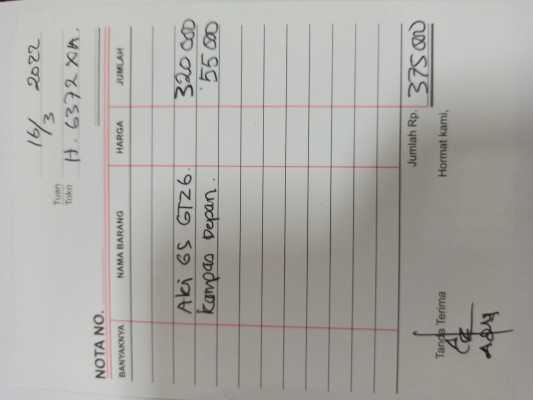 16/3 2022
Tuan
Toko H. 6372 XM.
NOTA NO.
BANYAKNYA NAMA BARANG HARGA JUMLAH
Aki GS GTZ6. 320 000
Kampas Depan. 55 000
Jumlah Rp. 375 000
Tanda Terima Hormat kami,